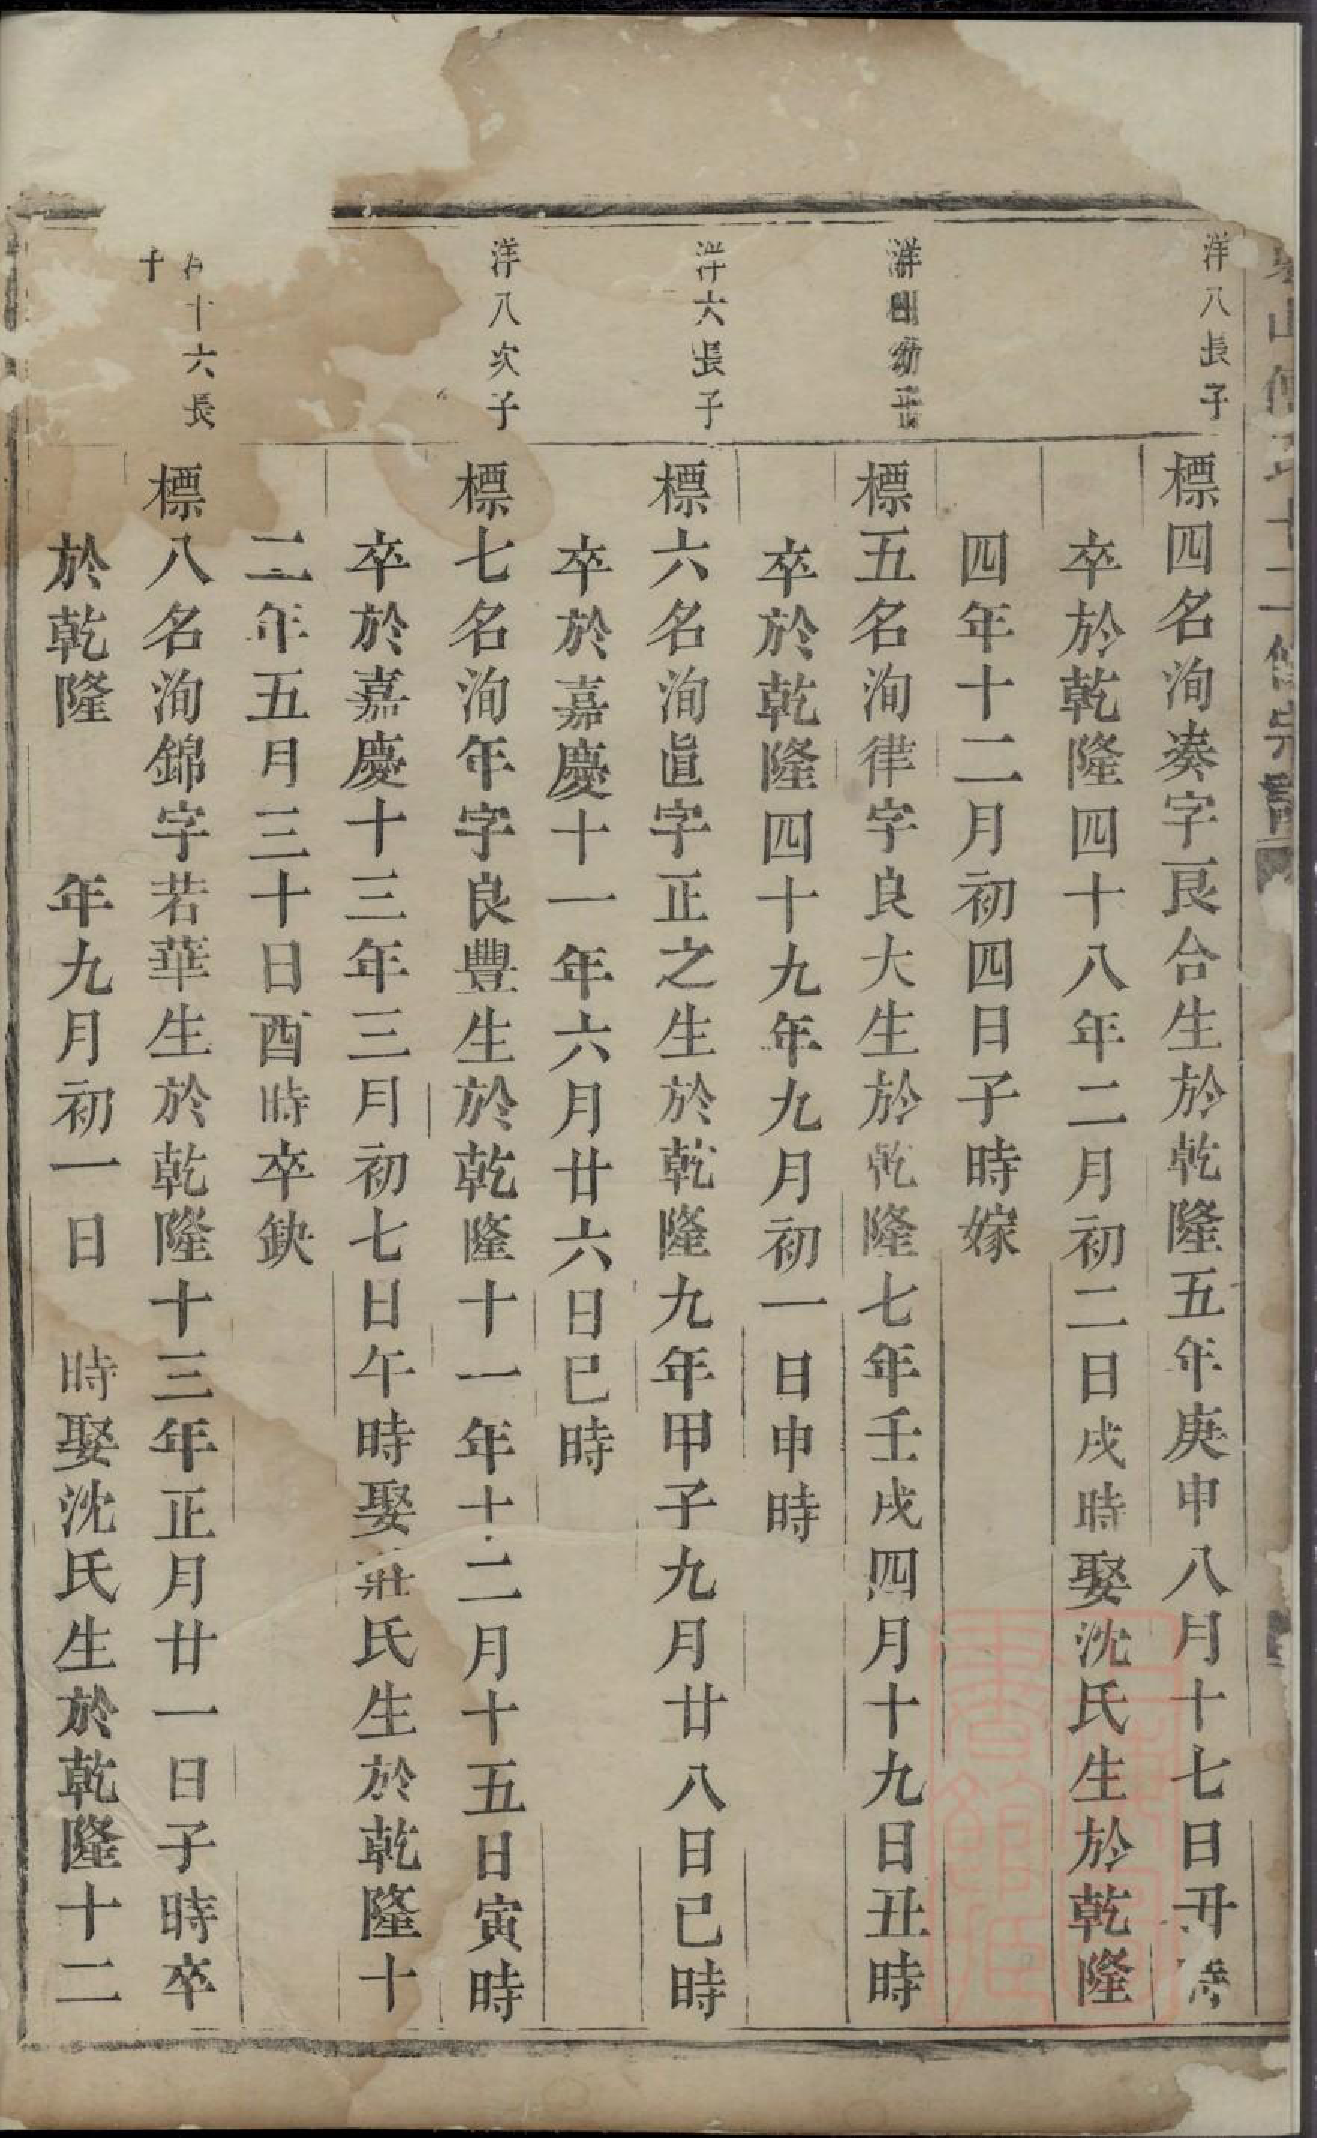 洋八長子
標四名洵凑字良台生於乾隆五年庚申八月十七日丑時
卒於乾隆四十八年二月初二日戌時娶沈氏生於乾隆
四年十二月初四日子時嫁
標五名洵律字良大生於乾隆七年壬戌四月十九日丑時
卒於乾隆四十九年九月初一日申時
洋六長子
標六名洵眞字正之生於乾隆九年甲子九月廿八日巳時
卒於嘉慶十一年六月廿六日巳時
洋八次子
標七名洵年字良豐生於乾隆十一年十二月十五日寅時
卒於嘉慶十三年三月初七日午時娶莊氏生於乾隆十
二年五月三十日酉時卒缺
十六長
子
標八名洵錦字若華生於乾隆十三年正月廿一日子時卒
於乾隆 年九月初一日 時娶沈氏生於乾隆十二